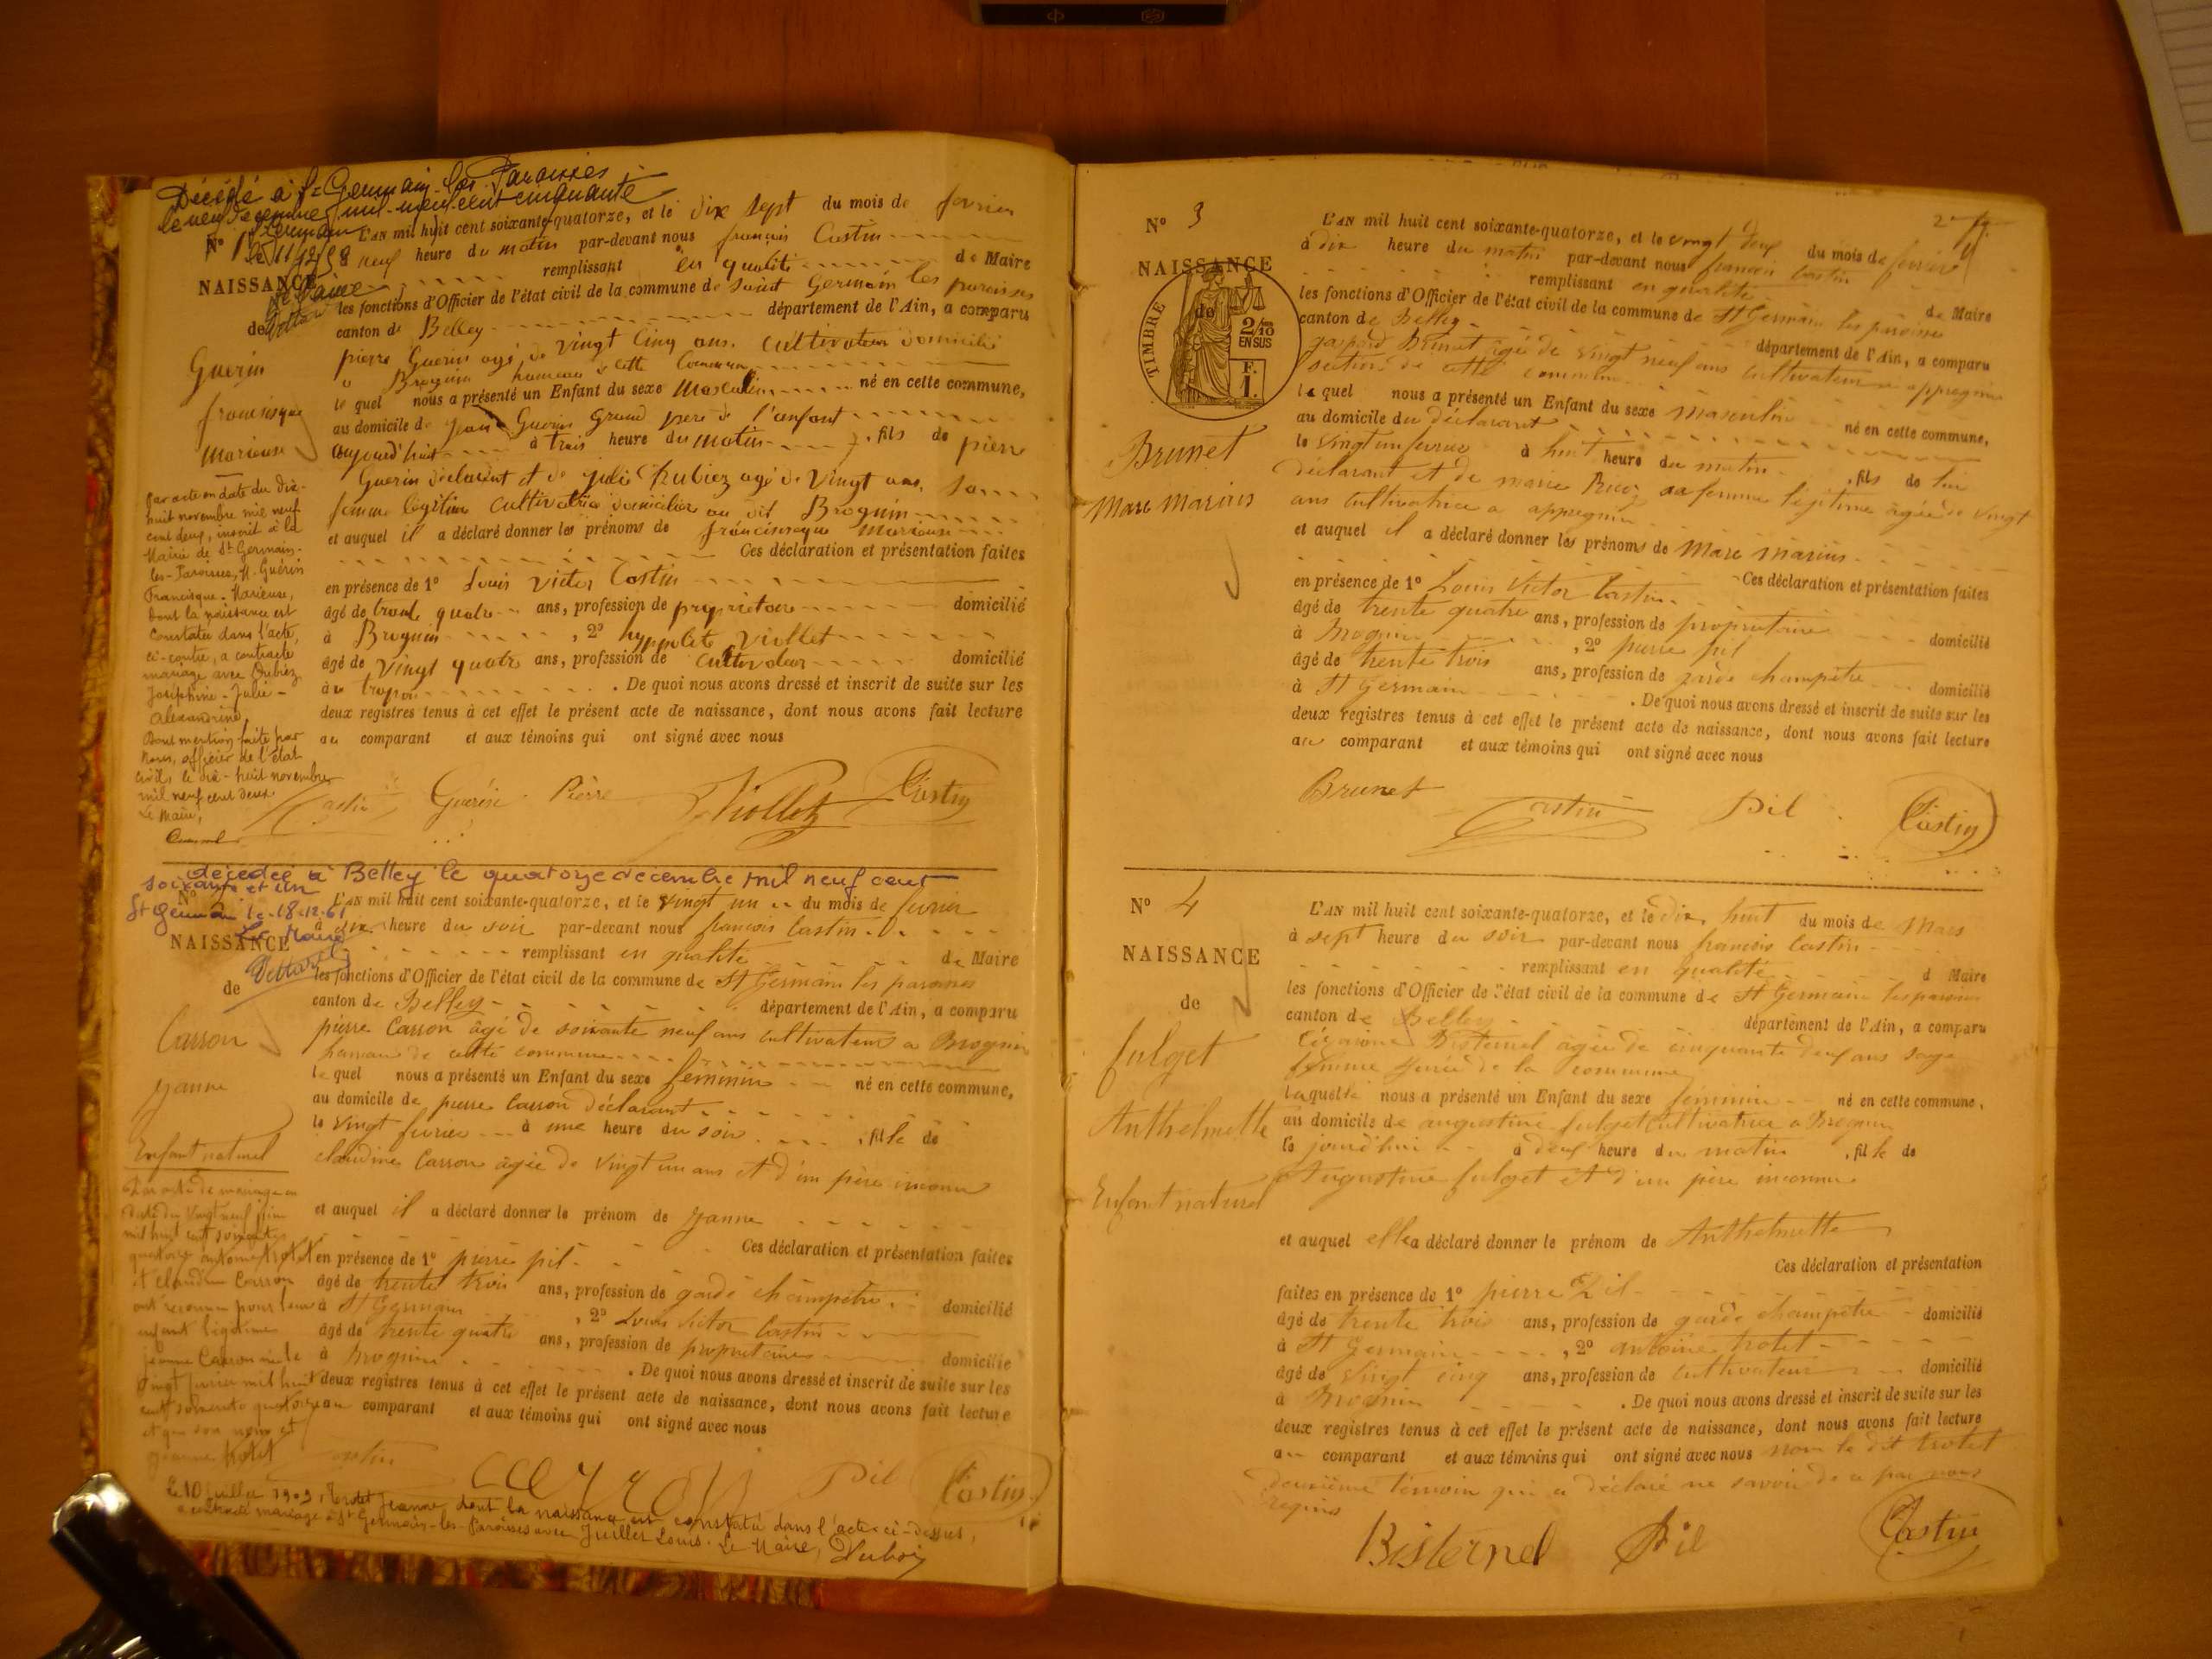 Décédé à St Germain-les-Paroisses
le neuf décembre mil-neuf-cent cinquante
St Germain
le 11/12/58
Le Maire
N° 1
NAISSANCE
de
Guerin
francisque
Marieuse
L'AN mil huit cent soixante-quatorze, et le dix sept du mois de fevrier
à neuf heure du matin par-devant nous françois Castin
remplissant en qualité de Maire
les fonctions d'Officier de l'état civil de la commune de saint Germain les paroisses
canton de Belley département de l'Ain, a comparu
pierre Guerin agé de vingt cinq ans cultivateur domicilié
a Brognin hameau de cette Commune
le quel nous a présenté un Enfant du sexe Masculin né en cette commune,
au domicile de jean Guerin Grand pere de l'enfant
aujourd'huit à trais heure du matin, fils de pierre
Guerin declarant et de julie Trubiez agé de vingt ans sa
femme legitime cultivatrice domicilier au dit Brognin
et auquel il a déclaré donner les prénoms de francisque Marieuse
Ces déclaration et présentation faites
en présence de 1° Louis Victor Castin
âgé de trente quatre ans, profession de proprietaire domicilié
à Brognin, 2° hyppolite Viollet
âgé de vingt quatre ans, profession de cultivateur domicilié
à. De quoi nous avons dressé et inscrit de suite sur les
deux registres tenus à cet effet le présent acte de naissance, dont nous avons fait lecture
au comparant et aux témoins qui ont signé avec nous
Castin Guérin Pierre Viollet Castin
Par acte en date du dix-
huit novembre mil neuf
cent deux, inscrit à la
Mairie de St Germain-
les-Paroisses, M. Guérin
Francisque-Marieuse,
dont la naissance est
constatée dans l'acte,
ci-contre, a contracté
mariage avec Trubiez
Joséphine-Julie-
Alexandrine.
Dont mention faite par
Nous, officier de l'état
civil, le dix-huit novembre
mil neuf cent deux.
Le Maire,
décédée à Belley le quatorze decembre mil neuf cent
soixante et un
St Germain le 18-12-61
Le Maire
N° 2
NAISSANCE
de
Carron
jeanne
Enfant naturel
L'AN mil huit cent soixante-quatorze, et le vingt un du mois de fevrier
à six heure du soir par-devant nous françois Castin
remplissant en qualité de Maire
les fonctions d'Officier de l'état civil de la commune de St Germain les paroisses
canton de Belley département de l'Ain, a comparu
pierre Carron agé de soixante neuf ans cultivateur a Brognin
hameau de cette commune
le quel nous a présenté un Enfant du sexe feminin né en cette commune,
au domicile de pierre Carron déclarant
le vingt fevrier à une heure du soir, fille de
claudine Carron âgée de vingt un ans et d'un père inconnu
et auquel il a déclaré donner le prénom de jeanne
Ces déclaration et présentation faites
en présence de 1° pierre pil
âgé de trente trois ans, profession de garde champêtre domicilié
à St Germain, 2° Louis Victor Castin
âgé de trente quatre ans, profession de propriétaire domicilié
à Brognin. De quoi nous avons dressé et inscrit de suite sur les
deux registres tenus à cet effet le présent acte de naissance, dont nous avons fait lecture
au comparant et aux témoins qui ont signé avec nous
Castin Carron Pil Castin
Par acte de mariage en
date du vingt neuf juin
mil huit cent soixante
quatorze antoine trotet
et claudine Carron
ont reconnu pour leur
enfant légitime
jeanne Carron née le
vingt fevrier mil huit
cent soixante quatorze
et que son nom est
jeanne trotet
Le 10 juillet 1909, Trotet Jeanne, dont la naissance est constatée dans l'acte ci-dessus,
a contracté mariage à St Germain-les-Paroisses avec Juillet Louis. Le Maire, Dubois
2
N° 3
NAISSANCE
de
TIMBRE
2/10 EN SUS
F. 1.
Brunet
Marc Marius
L'AN mil huit cent soixante-quatorze, et le vingt deux du mois de fevrier
à dix heure du matin par-devant nous francois Castin
remplissant en qualité de Maire
les fonctions d'Officier de l'état civil de la commune de St Germain les paroisses
canton de Belley département de l'Ain, a comparu
gaspard Brunet agé de vingt neuf ans cultivateur a appregnin
section de cette commune
le quel nous a présenté un Enfant du sexe masculin né en cette commune,
au domicile du déclarant
le vingt un fevrier à huit heure du matin, fils de lui
déclarant et de marie sa femme légitime agée de vingt
ans cultivatrice a appregnin
et auquel il a déclaré donner les prénoms de Marc Marius
Ces déclaration et présentation faites
en présence de 1° Louis Victor Castin
âgé de trente quatre ans, profession de propriétaire domicilié
à Brognin, 2° pierre pil
âgé de trente trois ans, profession de garde champêtre domicilié
à St Germain. De quoi nous avons dressé et inscrit de suite sur les
deux registres tenus à cet effet le présent acte de naissance, dont nous avons fait lecture
au comparant et aux témoins qui ont signé avec nous
Brunet Castin Pil Castin
N° 4
NAISSANCE
de
fulget
Anthelmette
Enfant naturel
L'AN mil huit cent soixante-quatorze, et le dix huit du mois de Mars
à sept heure du soir par-devant nous francois Castin
remplissant en qualité d Maire
les fonctions d'Officier de l'état civil de la commune de St Germain les paroisses
canton de Belley département de l'Ain, a comparu
Bisternel agée de cinquante deux ans sage
femme jurée de la commune
laquelle nous a présenté un Enfant du sexe feminin né en cette commune,
au domicile de augustine fulget cultivatrice a Brognin
le jourd'hui à deux heure du matin, fille de
Augustine fulget et d'un père inconnu
et auquel elle a déclaré donner le prénom de Anthelmette
Ces déclaration et présentation
faites en présence de 1° pierre Pil
âgé de trente trois ans, profession de garde champêtre domicilié
à St Germain, 2° antoine trotet
âgé de vingt cinq ans, profession de cultivateur domicilié
à Brognin. De quoi nous avons dressé et inscrit de suite sur les
deux registres tenus à cet effet le présent acte de naissance, dont nous avons fait lecture
au comparant et aux témoins qui ont signé avec nous non le dit trotet
deuxième témoin qui a déclaré ne savoir de ce par nous
requis
Bisternel Pil Castin